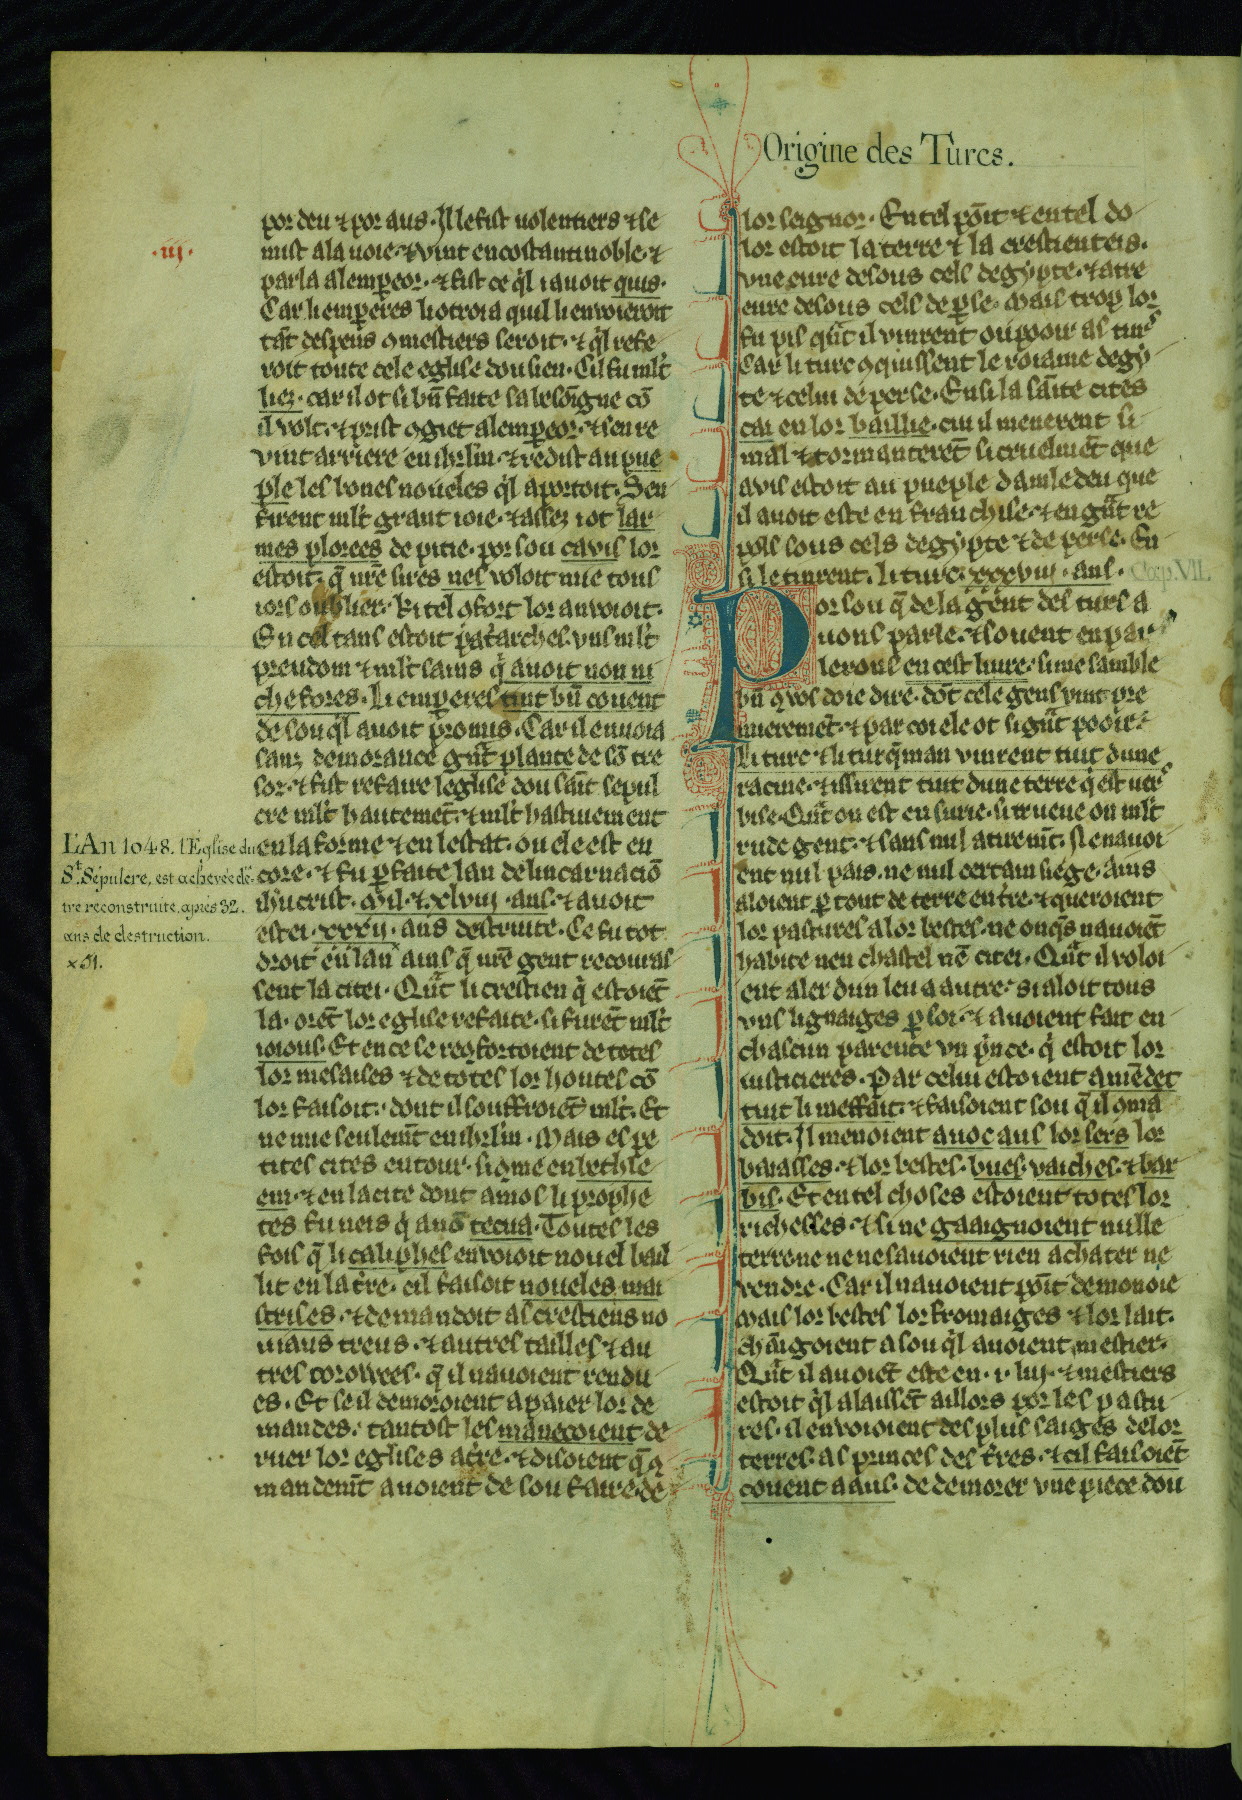 Origine des Turcs.
.iij.
por deu ⁊ por aus. Il le fist uolentiers ⁊ se
mist a la uoie. ⁊ vint en costantinoble. ⁊
parla a lempeor. ⁊ fist ce q̓l i auoit quis.
Car li emperes li otroia quil li enuoieroit
tāt despens 9 mestiers seroit. ⁊ q̓l refe
roit toute cele eglise dou sien. Cil fu ml't
liez. car il ot si bn̄ faite sa besoigne cō
il volt. ⁊ prist 9giet a lempeor. ⁊ sen re
vint arriere en ihrl'm. ⁊ redist au pue
ple les bones noueles q̓l aportoit. Sen
firent ml't grant ioie. ⁊ assez i ot lar
mes plorees de pitie. por sou cauis lor
estoit. q̄ nr̄e sires nes voloit mie tous
iors oublier. ki tel 9fort lor anuoioit.
En cel tans estoit pat'arches. vns ml't
preudom ⁊ ml't sains q̓ auoit non ni
chefores. Li emperes tint bn̄ couent
de sou q̓l auoit promis. Car il enuoia
sanz demorance gūt plante de sō tre
sor. ⁊ fist refaire leglise dou sāit sepul
cre ml't hautemēt. ⁊ ml't hastiuement
en la forme ⁊ en lestat. ou ele est en
core. ⁊ fu pfaite lan de lincarnaciō
ihū crist. Mil. ⁊ xlviij. ans. ⁊ auoit
estei. xxxij. ans destruite. Ce fu tot
droit en lan ains q̄ nr̄e gent recouras
sent la citei. Qūt li crestien q̓ estoiēt
la. orēt lor eglise refaite. si furēt ml't
ioious. Et en ce se re9fortoient de totes
lor mesaises ⁊ de totes lor hontes cō
lor faisoit. dont il souffroiēt ml't. Et
ne mie seulemt̄ en ihrl'm. Mais es pe
tites cites entour. si 9me en bethle
em. ⁊ en la cite dont amos li prophe
tes fu neis q̓ a nō tecua. Toutes les
fois q̄ li caliphes enuoioit nouel bail
lit en la tr̄e. cil faisoit noueles mai
strises. ⁊ demandoit as crestiens no
uiaus treus. ⁊ autres tailles ⁊ au
tres corowees. q̄ il nauoient rendu
es. Et se il demoroient a paier lor de
mandes. tantost les maneçoient de
ruer lor eglises a tr̄e. ⁊ disoient q̄ 9
mandemt̄ auoient de sou faire. de
LAn 1048. l'Eglise du
St. Sépulcre, est achevée d'ê-
tre reconstruite, après 32.
ans de destruction.
× 51.
lor seignor. En tel pōit ⁊ en tel do
lor estoit la terre ⁊ la crestienteis.
vne eure desous cels degypte. ⁊ atre
eure desous cels de pse. Mais trop lor
fu pis qūt il vinrent ou pooir as turs
Car li turc 9quissent le roiame degy
te ⁊ celui de perse. Ensi la sāite cites
cai en lor baillie. cui il menerent si
mal ⁊ tormanterēt si cruelmēt que
avis estoit au pueple damledeu que
il auoit este en franchise. ⁊ en gūt re
pois sous cels degypte ⁊ de perse. En
si le tinrent. li turc. xxxviij. ans.
Cap. VII.
Por sou q̄ de la gent des turs a
uons parle. ⁊ souent en par
lerons en cest liure. si me samble
bn̄ q̓ vos doie dire. dōt cele gens vint pre
mieremēt. ⁊ par coi ele ot si gūt pooir.
Li turc ⁊ li turq̄man vinrent tuit dune
racine. ⁊ issirent tuit dune terre q̓ est uers
bise. Qūt on est en surie. si trueue on ml't
rude gent. ⁊ sans nul aturemt̄. Il enauoi
ent nul pais. ne nul certain siege. Ains
aloient p tout de terre en tr̄e. ⁊ queroient
lor pastures a lor bestes. ne onq̄s nauoiēt
habite nen chastel nē citei. Qūt il voloi
ent aler dun leu a autre. si aloit tous
vns lignaiges p soi. ⁊ auoient fait en
chascun parente vn p̓nce. q̓ estoit lor
iusticieres. Par celui estoient amēdet
tuit li meffait. ⁊ faisoient sou q̄ il 9mā
doit. Il menoient auoc aus lor sers lor
baiasses. ⁊ lor bestes. bues. vaiches. ⁊ bar
bis. Et en tel choses estoient totes lor
richesses. ⁊ si ne gaaignoient nulle
terre ne ne sauoient rien achater ne
vendre. Car il nauoient poīt de monoie
Mais lor bestes lor fromaiges ⁊ lor lait.
chāigoient a sou q̓l auoient mestier.
Qūt il auoiēt este en .i. liu. ⁊ mestiers
estoit q̓l alaissēt aillors por les pastu
res. il enuoioient des plus saiges de lor
terres. as princes des tr̄es. ⁊ cil faisoiēt
couent a aus. de demorer vne piece dou